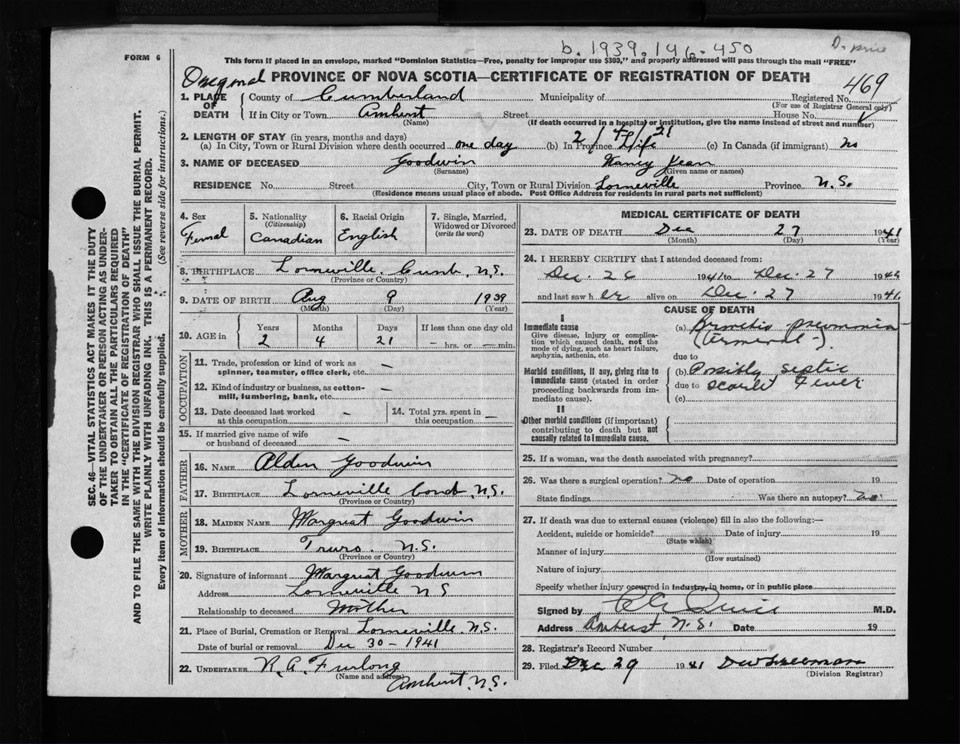 b. 1939. 196-450
FORM 6
This form if placed in an envelope, marked "Dominion Statistics—Free, penalty for improper use $300," and properly addressed will pass through the mail "FREE"
PROVINCE OF NOVA SCOTIA—CERTIFICATE OF REGISTRATION OF DEATH
469
1. PLACE OF DEATH County of Cumberland Municipality of Registered No. (For use of Registrar General only)
If in City or Town Amherst (Name) Street House No.
(If death occurred in a hospital or institution, give the name instead of street and number)
2. LENGTH OF STAY (in years, months and days) 2/4/21
(a) In City, Town or Rural Division where death occurred one day (b) In Province Life (c) In Canada (if immigrant) no
3. NAME OF DECEASED Goodwin (Surname) Nancy Jean (Given name or names)
RESIDENCE No. Street City, Town or Rural Division Lorneville Province N.S.
(Residence means usual place of abode. Post Office Address for residents in rural parts not sufficient)
4. Sex Femal
5. Nationality (Citizenship) Canadian
6. Racial Origin English
7. Single, Married, Widowed or Divorced (write the word)
8. BIRTHPLACE Lorneville, Cumb, N.S.
(Province or Country)
9. DATE OF BIRTH Aug 9 1939
(Month) (Day) (Year)
10. AGE in Years 2 Months 4 Days 21 If less than one day old – hrs. or – min.
OCCUPATION
11. Trade, profession or kind of work as spinner, teamster, office clerk, etc. —
12. Kind of industry or business, as cotton-mill, lumbering, bank, etc. —
13. Date deceased last worked at this occupation —
14. Total yrs. spent in this occupation —
15. If married give name of wife or husband of deceased —
FATHER
16. NAME Alden Goodwin
17. BIRTHPLACE Lorneville N.S.
(Province or Country)
MOTHER
18. MAIDEN NAME Margreat Goodwin
19. BIRTHPLACE Truro. N.S.
(Province or Country)
20. Signature of informant Margreat Goodwin
Address Lorneville N S
Relationship to deceased Mother
21. Place of Burial, Cremation or Removal Lorneville N.S.
Date of burial or removal Dec 30 - 1941
22. UNDERTAKER R. A. Furlong
(Name and address) Amherst, N.S.
MEDICAL CERTIFICATE OF DEATH
23. DATE OF DEATH Dec 27 1941
(Month) (Day) (Year)
24. I HEREBY CERTIFY that I attended deceased from:
Dec. 26 1941 to Dec. 27 194
and last saw her alive on Dec. 27 1941.
CAUSE OF DEATH
I
Immediate cause
Give disease, injury or complication which caused death, not the mode of dying, such as heart failure, asphyxia, asthenia, etc.
(a) pneumonia
due to
Morbid conditions, if any, giving rise to immediate cause (stated in order proceeding backwards from immediate cause).
(b) Possibly septic
due to Scarlet Fever
(c)
II
Other morbid conditions (if important) contributing to death but not causally related to immediate cause.
25. If a woman, was the death associated with pregnancy?
26. Was there a surgical operation? no Date of operation 19
State findings Was there an autopsy? no
27. If death was due to external causes (violence) fill in also the following:—
Accident, suicide or homicide? Date of injury 19
(State which)
Manner of injury
(How sustained)
Nature of injury
Specify whether injury occurred in industry, in home, or in public place
Signed by M.D.
Address Amherst, N.S. Date 19
28. Registrar's Record Number
29. Filed Dec 29 1941
(Division Registrar)
SEC. 46—VITAL STATISTICS ACT MAKES IT THE DUTY
OF THE UNDERTAKER OR PERSON ACTING AS UNDER-
TAKER TO OBTAIN ALL THE PARTICULARS REQUIRED
IN THE "CERTIFICATE OF REGISTRATION OF DEATH"
AND TO FILE THE SAME WITH THE DIVISION REGISTRAR WHO SHALL ISSUE THE BURIAL PERMIT.
WRITE PLAINLY WITH UNFADING INK. THIS IS A PERMANENT RECORD.
Every item of information should be carefully supplied. (See reverse side for instructions.)